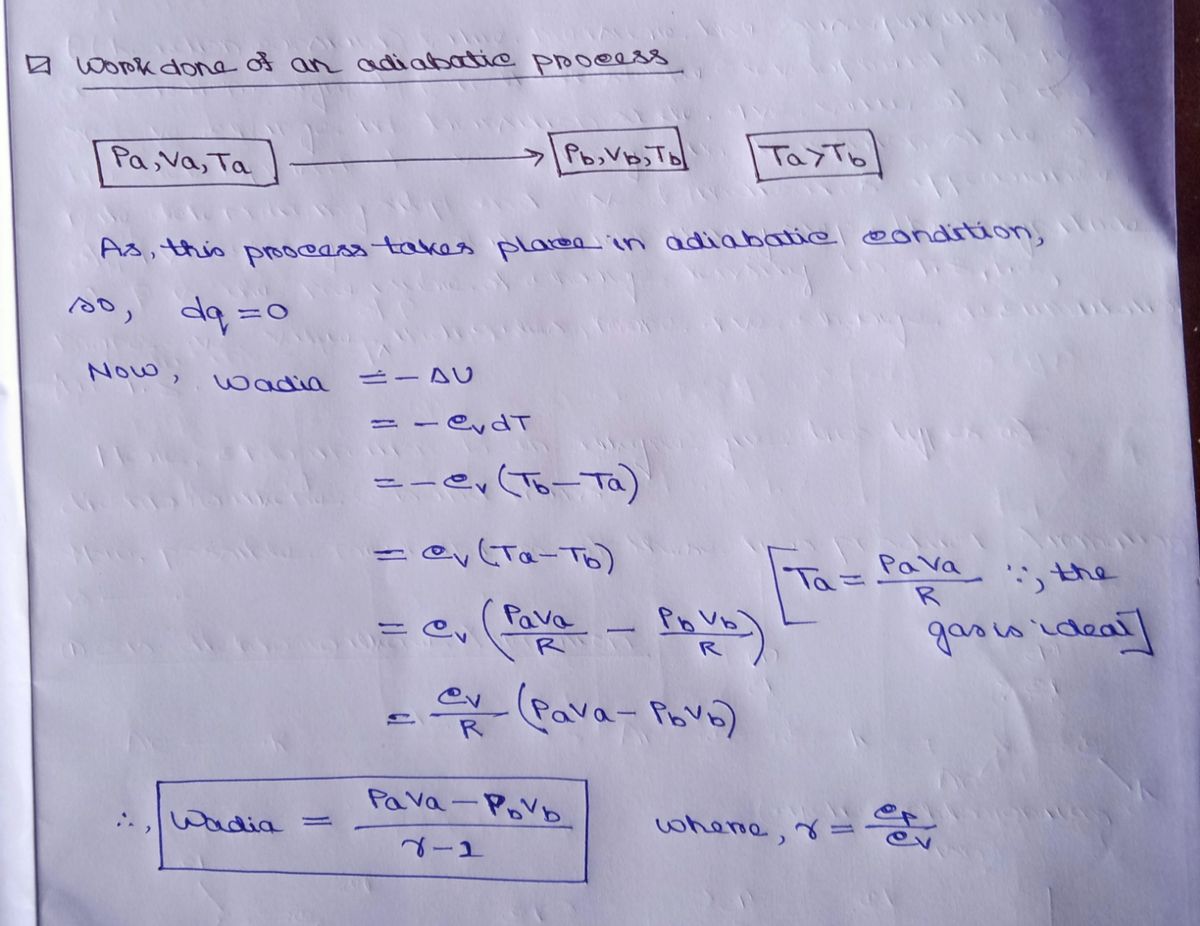 Work done of an adiabatic process
Pa, Va, Ta → Pb, Vb, Tb Ta > Tb
As, this process takes place in adiabatic condition,
so, dq = 0
Now, Wadia = - ΔU
= - Cv dT
= - Cv (Tb - Ta)
= Cv (Ta - Tb)
[Ta = PaVa/R ∵, the
= Cv (PaVa/R - PbVb/R)
gas is ideal]
= Cv/R (PaVa - PbVb)
∴, Wadia = (PaVa - PbVb)/(γ-1) where, γ = Cp/Cv